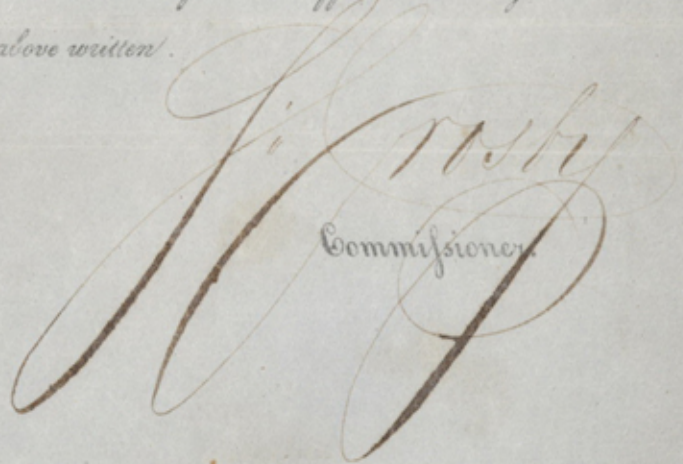 above written.
J. Crosby
Commissioner.